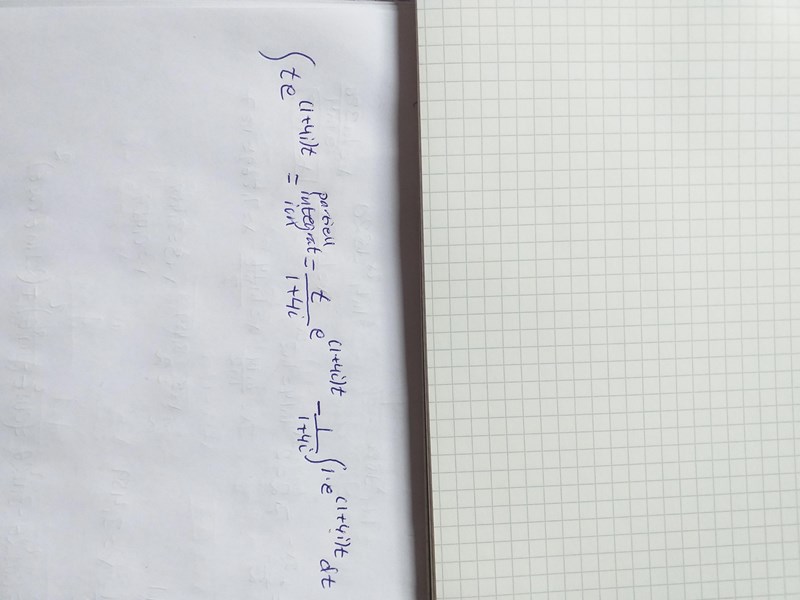 ∫ t e^{(1+4i)t} = partiell integration = \frac{t}{1+4i} e^{(1+4i)t} - \frac{1}{1+4i} ∫ 1·e^{(1+4i)t} dt